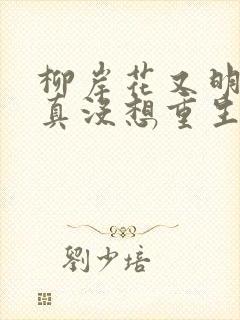 柳岸花又明
真没想重生
劉少培